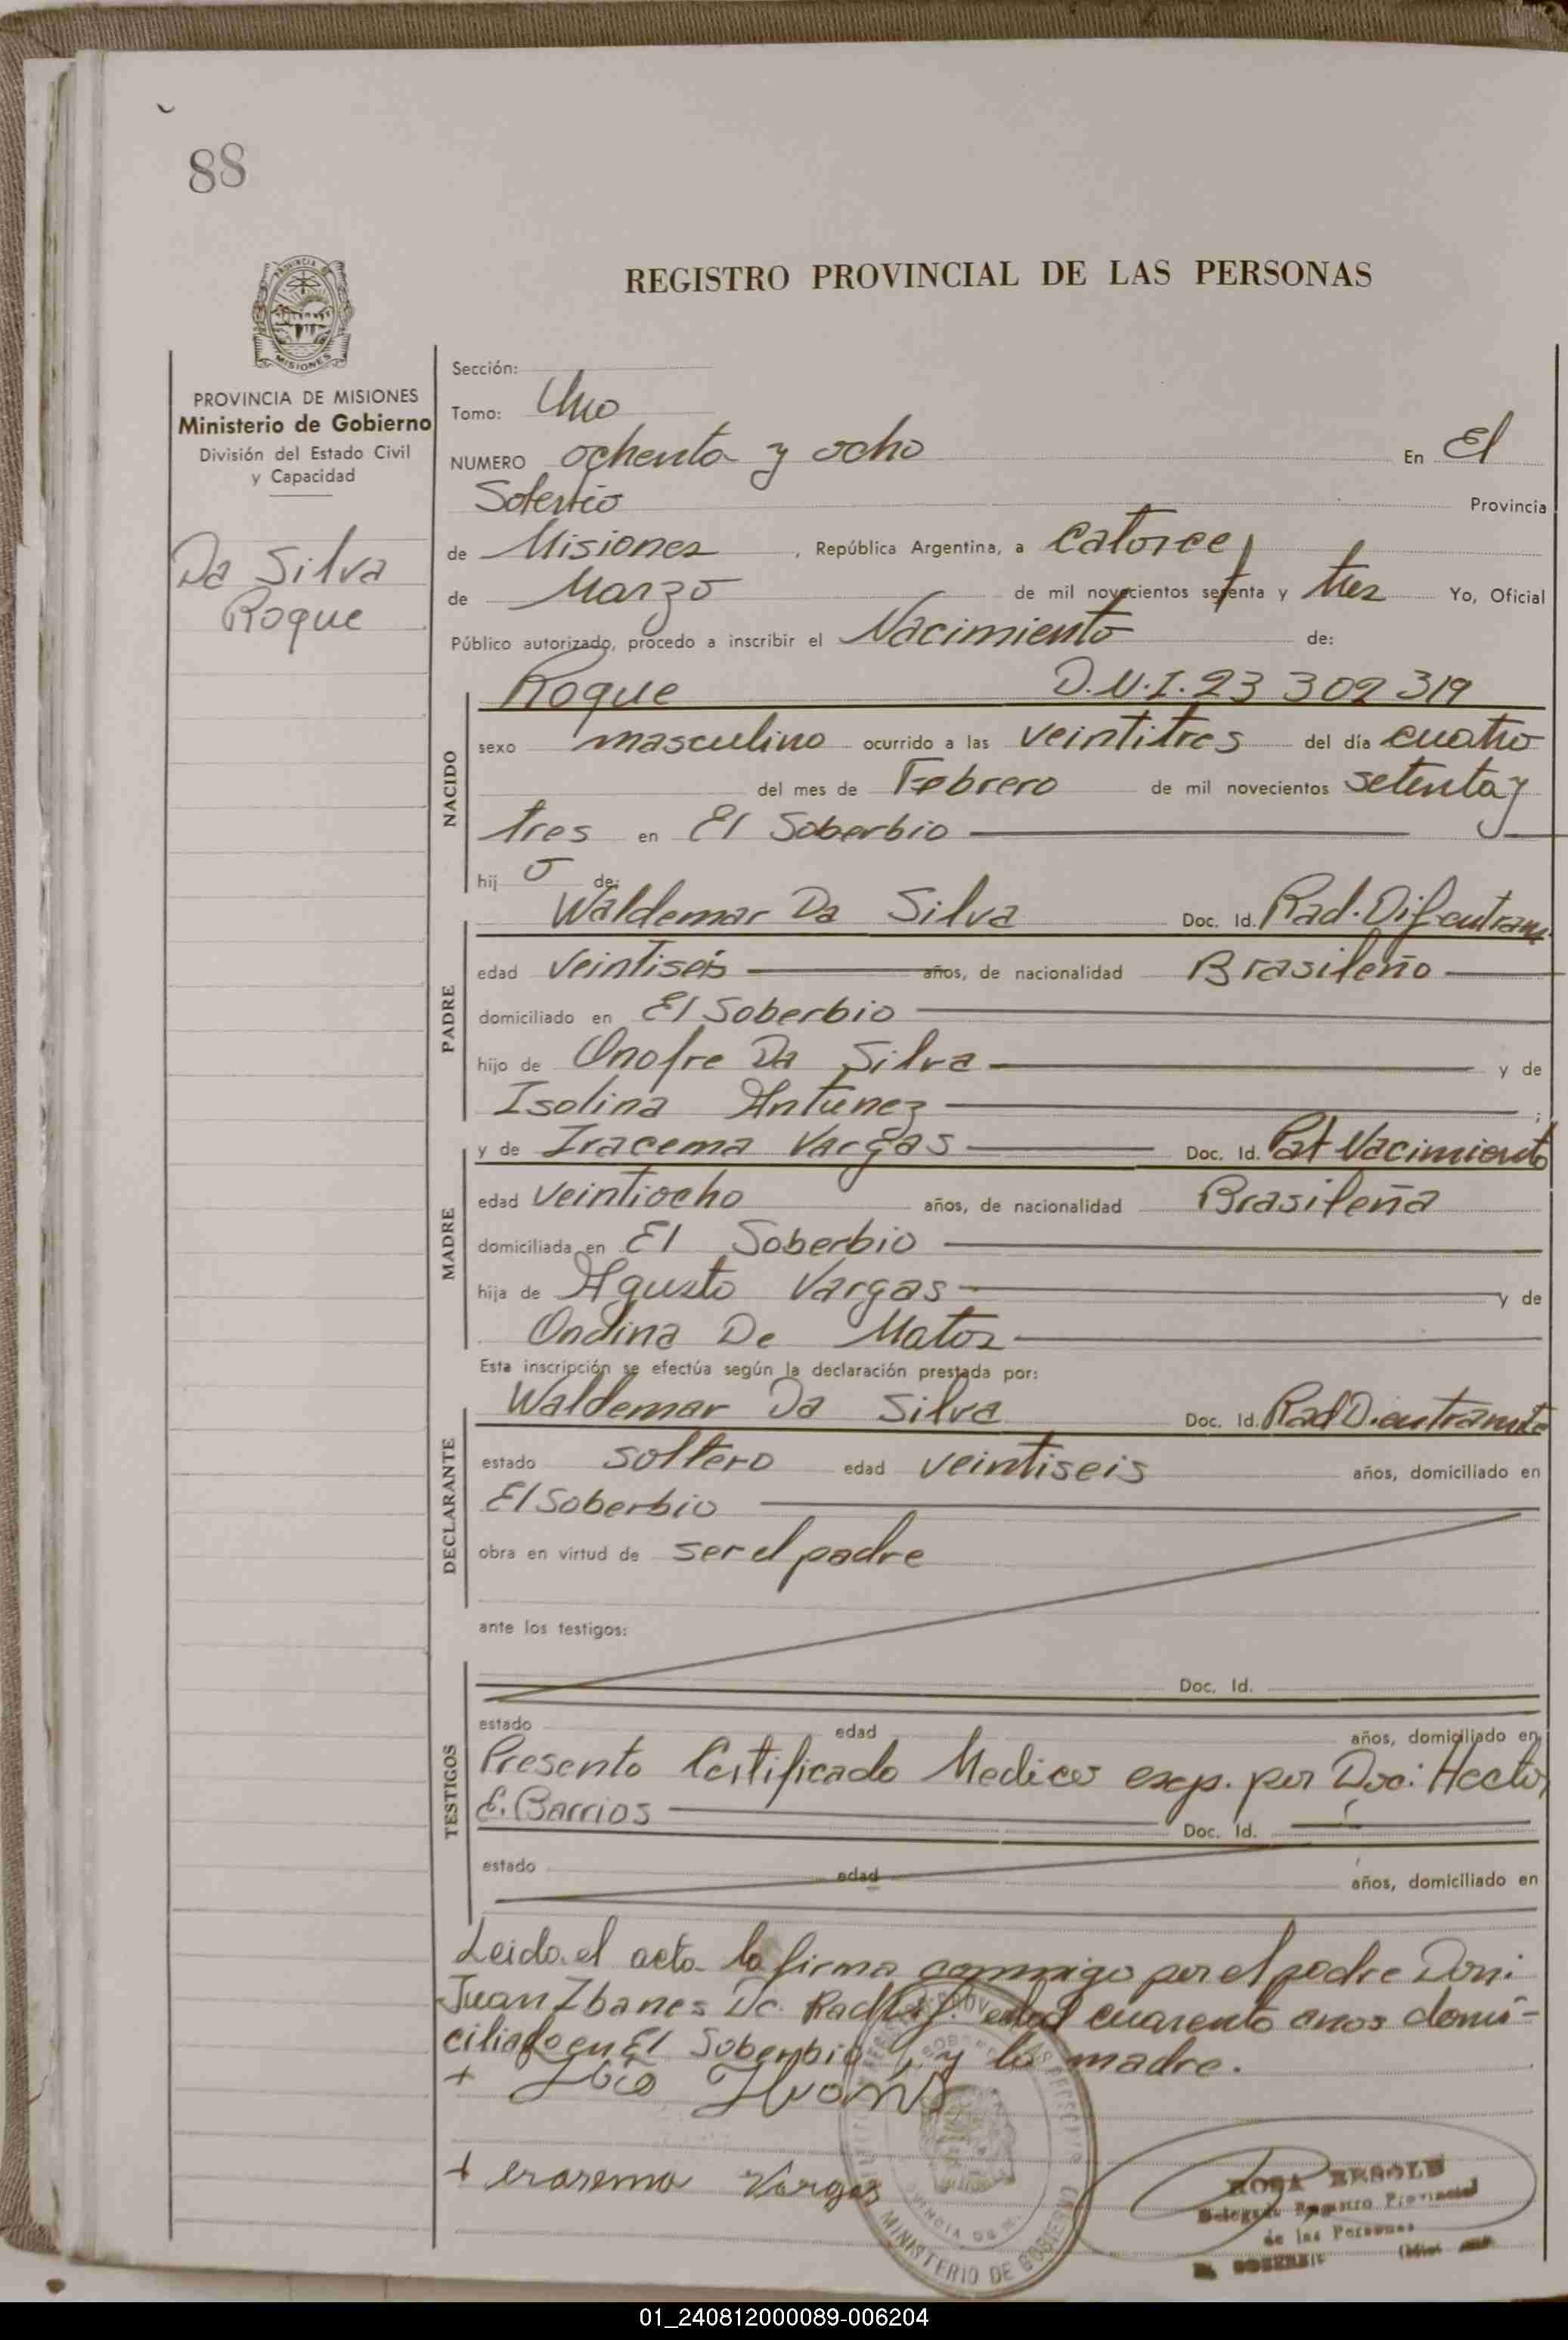 88
REGISTRO PROVINCIAL DE LAS PERSONAS
PROVINCIA DE
MISIONES
PROVINCIA DE MISIONES
Ministerio de Gobierno
División del Estado Civil
y Capacidad
Da Silva
Roque
Sección:
Tomo: Uno
NUMERO ochenta y ocho En El
Soberbio Provincia
de Misiones, República Argentina, a catorce
de Marzo de mil novecientos setenta y tres Yo, Oficial
Público autorizado, procedo a inscribir el Nacimiento de:
Roque D.N.I. 23 302 319
NACIDO
sexo masculino ocurrido a las veintitres del día cuatro
del mes de Febrero de mil novecientos setenta y
tres en El Soberbio
hij o de:
Waldemar Da Silva Doc. Id. Rad. Dif. entram
PADRE
edad veintiseis años, de nacionalidad Brasileño
domiciliado en El Soberbio
hijo de Onofre Da Silva y de
Isolina Antunez ;
y de Iracema Vargas Doc. Id. Pat Nacimiento
MADRE
edad veintiocho años, de nacionalidad Brasileña
domiciliada en El Soberbio
hija de Agusto Vargas y de
Ondina De Matos
Esta inscripción se efectúa según la declaración prestada por:
Waldemar Da Silva Doc. Id. Rad D. entramite
DECLARANTE
estado soltero edad veintiseis años, domiciliado en
El Soberbio
obra en virtud de ser el padre
ante los testigos:
Doc. Id.
TESTIGOS
estado edad años, domiciliado en
Presento Certificado Medico exp. por Doc: Hector
E. Barrios Doc. Id.
estado edad años, domiciliado en
Leido el acta la firma conmigo por el padre Don:
Juan Ibanes Dc. Rad Dif. edad cuarenta anos domi-
ciliado en El Soberbio y la madre.
+
+ erasema Vargas
MINISTERIO DE GOBIERNO
ROSA
Delegada Registro Provincial
de las Personas
01_240812000089-006204